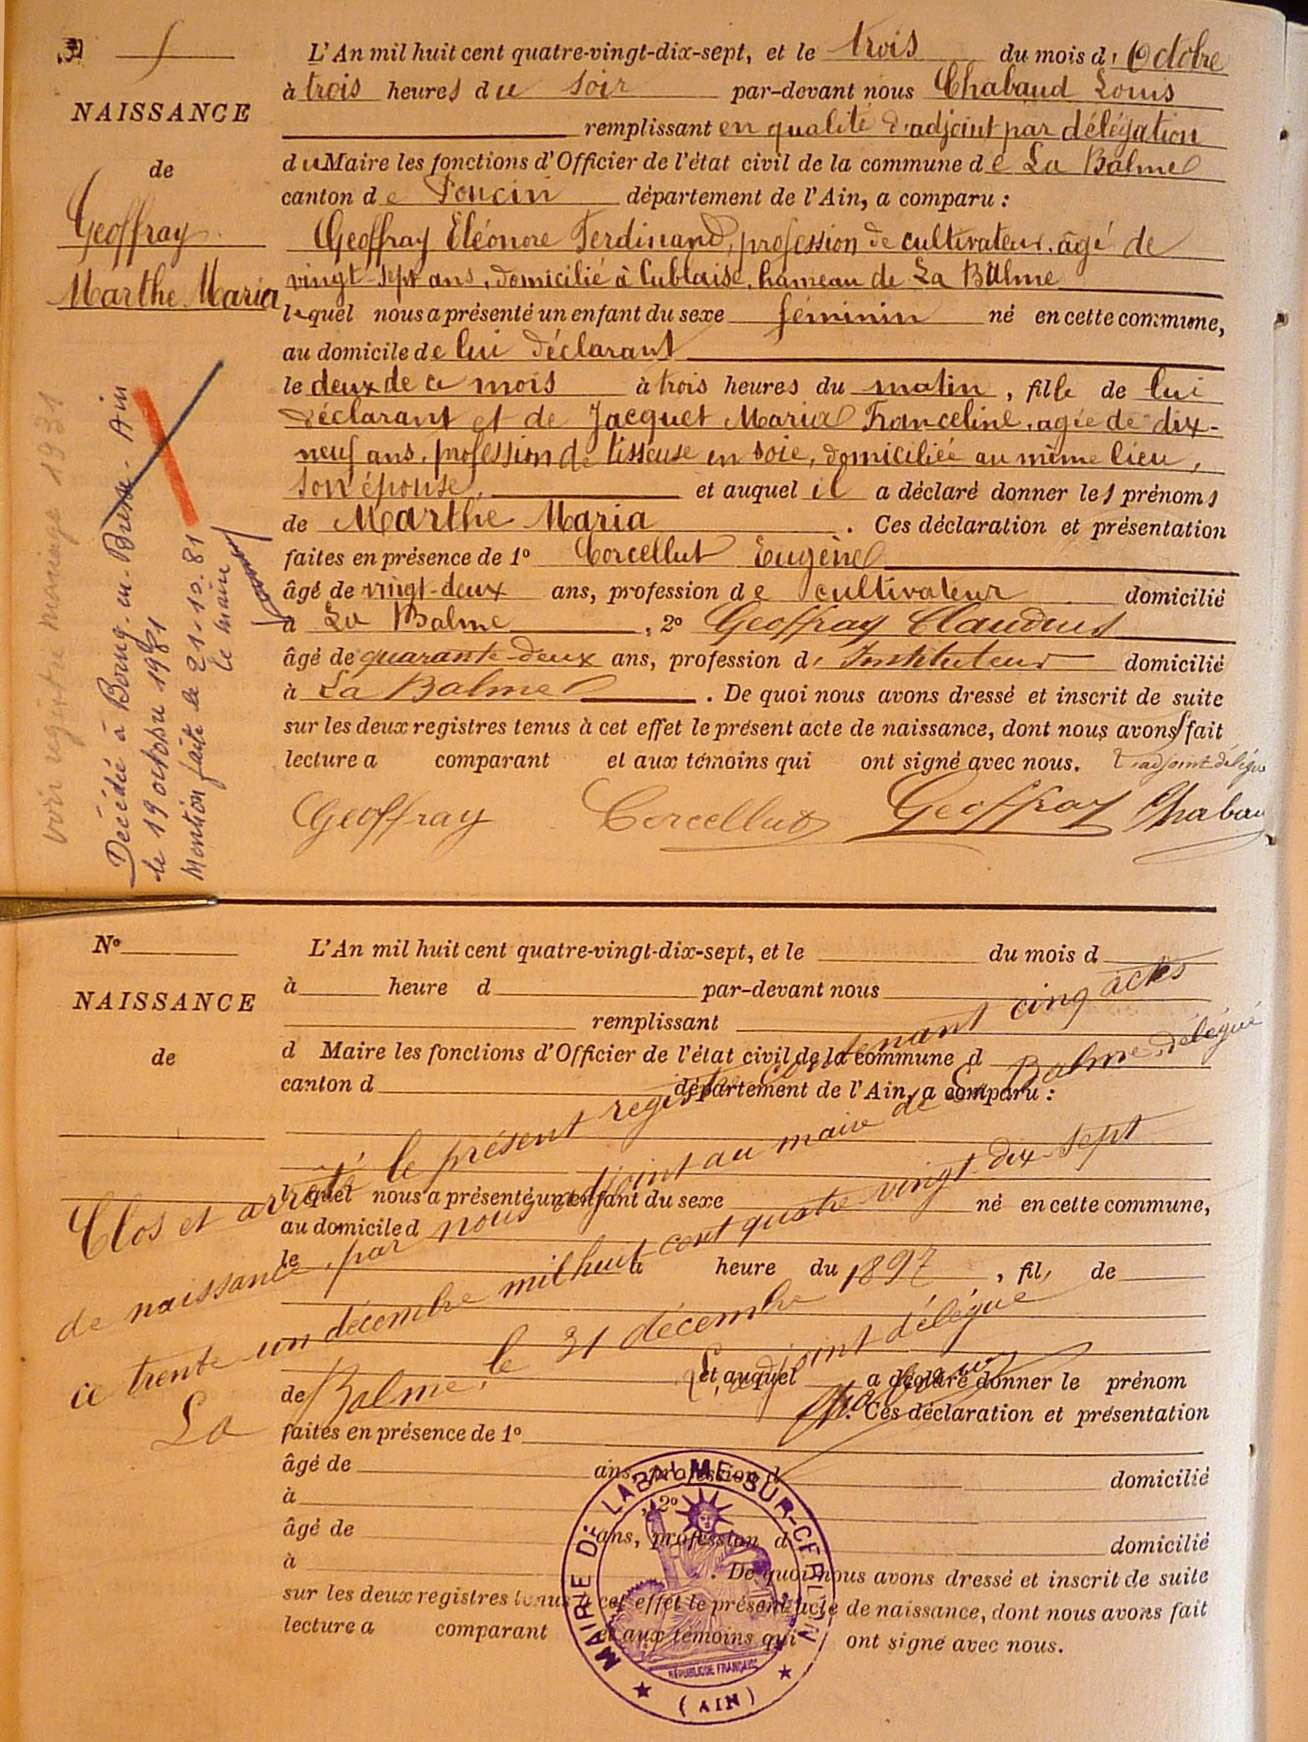 NAISSANCE
de
Geoffray
Marthe Maria
L'An mil huit cent quatre-vingt-dix-sept, et le trois du mois d'Octobre
à trois heures du soir par-devant nous Chabaud Louis
remplissant en qualité d'adjoint par délégation
du Maire les fonctions d'Officier de l'état civil de la commune de La Balme
canton de Poncin département de l'Ain, a comparu :
Geoffray Eléonore Ferdinand, profession de cultivateur, âgé de
vingt-sept ans, domicilié à Cublaise, hameau de La Balme
lequel nous a présenté un enfant du sexe féminin né en cette commune,
au domicile de lui déclarant
le deux de ce mois à trois heures du matin, fille de lui
déclarant et de Jacquet Maria Franceline, agée de dix-
neuf ans, profession de tisseuse en soie, domiciliée au même lieu,
son épouse, et auquel il a déclaré donner les prénoms
de Marthe Maria. Ces déclaration et présentation
faites en présence de 1° Corcellut Eugène
âgé de vingt-deux ans, profession de cultivateur domicilié
à La Balme, 2° Geoffray Claudius
âgé de quarante-deux ans, profession d'Instituteur domicilié
à La Balme. De quoi nous avons dressé et inscrit de suite
sur les deux registres tenus à cet effet le présent acte de naissance, dont nous avons fait
lecture a comparant et aux témoins qui ont signé avec nous. L'adjoint délégué
Geoffray Corcellut Geoffray Chabaud
voir registre mariage 1931
Décédée à Bourg-en-Bresse - Ain
le 19 octobre 1981
Mention faite le 21-12-81
le maire
N°
NAISSANCE
de
L'An mil huit cent quatre-vingt-dix-sept, et le du mois d
à heure d par-devant nous
remplissant
d Maire les fonctions d'Officier de l'état civil de la commune d
canton d département de l'Ain, a comparu :
lequel nous a présenté un enfant du sexe né en cette commune,
au domicile d
le à heure du , fil de
et auquel a déclaré donner le prénom
de . Ces déclaration et présentation
faites en présence de 1°
âgé de ans, profession d domicilié
à , 2°
âgé de ans, profession d domicilié
à . De quoi nous avons dressé et inscrit de suite
sur les deux registres tenus à cet effet le présent acte de naissance, dont nous avons fait
lecture a comparant et aux témoins qui ont signé avec nous.
Clos et arrêté le présent registre contenant cinq actes
de naissance, par nous adjoint au maire de La Balme, délégué
ce trente un décembre mil huit cent quatre vingt-dix-sept
La Balme, le 31 décembre 1897
L'adjoint délégué
Chabaud
MAIRIE DE LABALME-SUR-CERDON
RÉPUBLIQUE FRANÇAISE
(AIN)